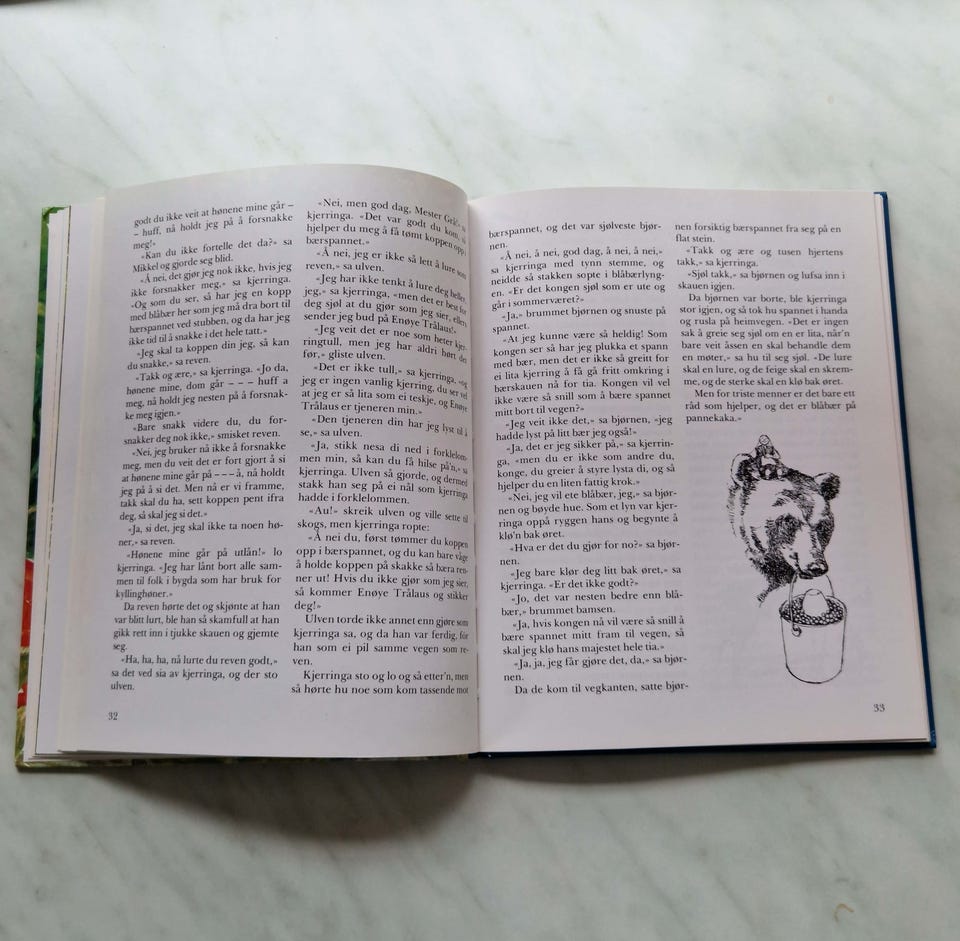 godt du ikke veit at hønene mine går –
– huff, nå holdt jeg på å forsnakke
meg!»
«Kan du ikke fortelle det da?» sa
Mikkel og gjorde seg blid.
«Å nei, det gjør jeg nok ikke, hvis jeg
ikke forsnakker meg,» sa kjerringa.
«Og som du ser, så har jeg en kopp
med blåbær her som jeg må dra bort til
bærspannet ved stubben, og da har jeg
ikke tid til å snakke i det hele tatt.»
«Jeg skal ta koppen din jeg, så kan
du snakke,» sa reven.
«Takk og ære,» sa kjerringa. «Jo da,
hønene mine, dom går – – – huff a
meg, nå holdt jeg nesten på å forsnak-
ke meg igjen.»
«Bare snakk videre du, du for-
snakker deg nok ikke,» smisket reven.
«Nei, jeg bruker nå ikke å forsnakke
meg, men du veit det er fort gjort å si
at hønene mine går på – – – å, nå holdt
jeg på å si det. Men nå er vi framme,
takk skal du ha, sett koppen pent ifra
deg, så skal jeg si det.»
«Ja, si det, jeg skal ikke ta noen hø-
ner,» sa reven.
«Hønene mine går på utlån!» lo
kjerringa. «Jeg har lånt bort alle sam-
men til folk i bygda som har bruk for
kyllinghøner.»
Da reven hørte det og skjønte at han
var blitt lurt, ble han så skamfull at han
gikk rett inn i tjukke skauen og gjemte
seg.
«Ha, ha, ha, nå lurte du reven godt,»
sa det ved sia av kjerringa, og der sto
ulven.
32
«Nei, men god dag, Mester Grå!» sa
kjerringa. «Det var godt du kom, så
hjelper du meg å få tømt koppen opp i
bærspannet.»
«Å nei, jeg er ikke så lett å lure som
reven,» sa ulven.
«Jeg har ikke tenkt å lure deg heller,
jeg,» sa kjerringa, «men det er best for
deg sjøl at du gjør som jeg sier, ellers
sender jeg bud på Enøye Trålaus!»
«Jeg veit det er noe som heter kjer-
ringtull, men jeg har aldri hørt det
før,» gliste ulven.
«Det er ikke tull,» sa kjerringa, «og
jeg er ingen vanlig kjerring, du ser vel
at jeg er så lita som ei teskje, og Enøye
Trålaus er tjeneren min.»
«Den tjeneren din har jeg lyst til å
se,» sa ulven.
«Ja, stikk nesa di ned i forklelom-
men min, så kan du få hilse på'n,» sa
kjerringa. Ulven så gjorde, og dermed
stakk han seg på ei nål som kjerringa
hadde i forklelommen.
«Au!» skreik ulven og ville sette til
skogs, men kjerringa ropte:
«Å nei du, først tømmer du koppen
opp i bærspannet, og du kan bare våge
å holde koppen på skakke så bæra ren-
ner ut! Hvis du ikke gjør som jeg sier,
så kommer Enøye Trålaus og stikker
deg!»
Ulven torde ikke annet enn gjøre som
kjerringa sa, og da han var ferdig, fór
han som ei pil samme vegen som re-
ven.
Kjerringa sto og lo og så etter'n, men
så hørte hu noe som kom tassende mot
bærspannet, og det var sjølveste bjør-
nen.
«Å nei, å nei, god dag, å nei, å nei,»
sa kjerringa med tynn stemme, og
neidde så stakken sopte i blåbærlyng-
en. «Er det kongen sjøl som er ute og
går i sommerværet?»
«Ja,» brummet bjørnen og snuste på
spannet.
«At jeg kunne være så heldig! Som
kongen ser så har jeg plukka et spann
med bær, men det er ikke så greitt for
ei lita kjerring å få gå fritt omkring i
bærskauen nå for tia. Kongen vil vel
ikke være så snill som å bære spannet
mitt bort til vegen?»
«Jeg veit ikke det,» sa bjørnen, «jeg
hadde lyst på litt bær jeg også!»
«Ja, det er jeg sikker på,» sa kjerrin-
ga, «men du er ikke som andre du,
konge, du greier å styre lysta di, og så
hjelper du en liten fattig krok.»
«Nei, jeg vil ete blåbær, jeg,» sa bjør-
nen og bøyde hue. Som et lyn var kjer-
ringa oppå ryggen hans og begynte å
klø'n bak øret.
«Hva er det du gjør for no?» sa bjør-
nen.
«Jeg bare klør deg litt bak øret,» sa
kjerringa. «Er det ikke godt?»
«Jo, det var nesten bedre enn blå-
bær,» brummet bamsen.
«Ja, hvis kongen nå vil være så snill å
bære spannet mitt fram til vegen, så
skal jeg klø hans majestet hele tia.»
«Ja, ja, jeg får gjøre det, da,» sa bjør-
nen.
Da de kom til vegkanten, satte bjør-
nen forsiktig bærspannet fra seg på en
flat stein.
«Takk og ære og tusen hjertens
takk,» sa kjerringa.
«Sjøl takk,» sa bjørnen og lufsa inn i
skauen igjen.
Da bjørnen var borte, ble kjerringa
stor igjen, og så tok hu spannet i handa
og rusla på heimvegen. «Det er ingen
sak å greie seg sjøl om en er lita, når'n
bare veit åssen en skal behandle dem
en møter,» sa hu til seg sjøl. «De lure
skal en lure, og de feige skal en skrem-
me, og de sterke skal en klø bak øret.
Men for triste menner er det bare ett
råd som hjelper, og det er blåbær på
pannekaka.»
33